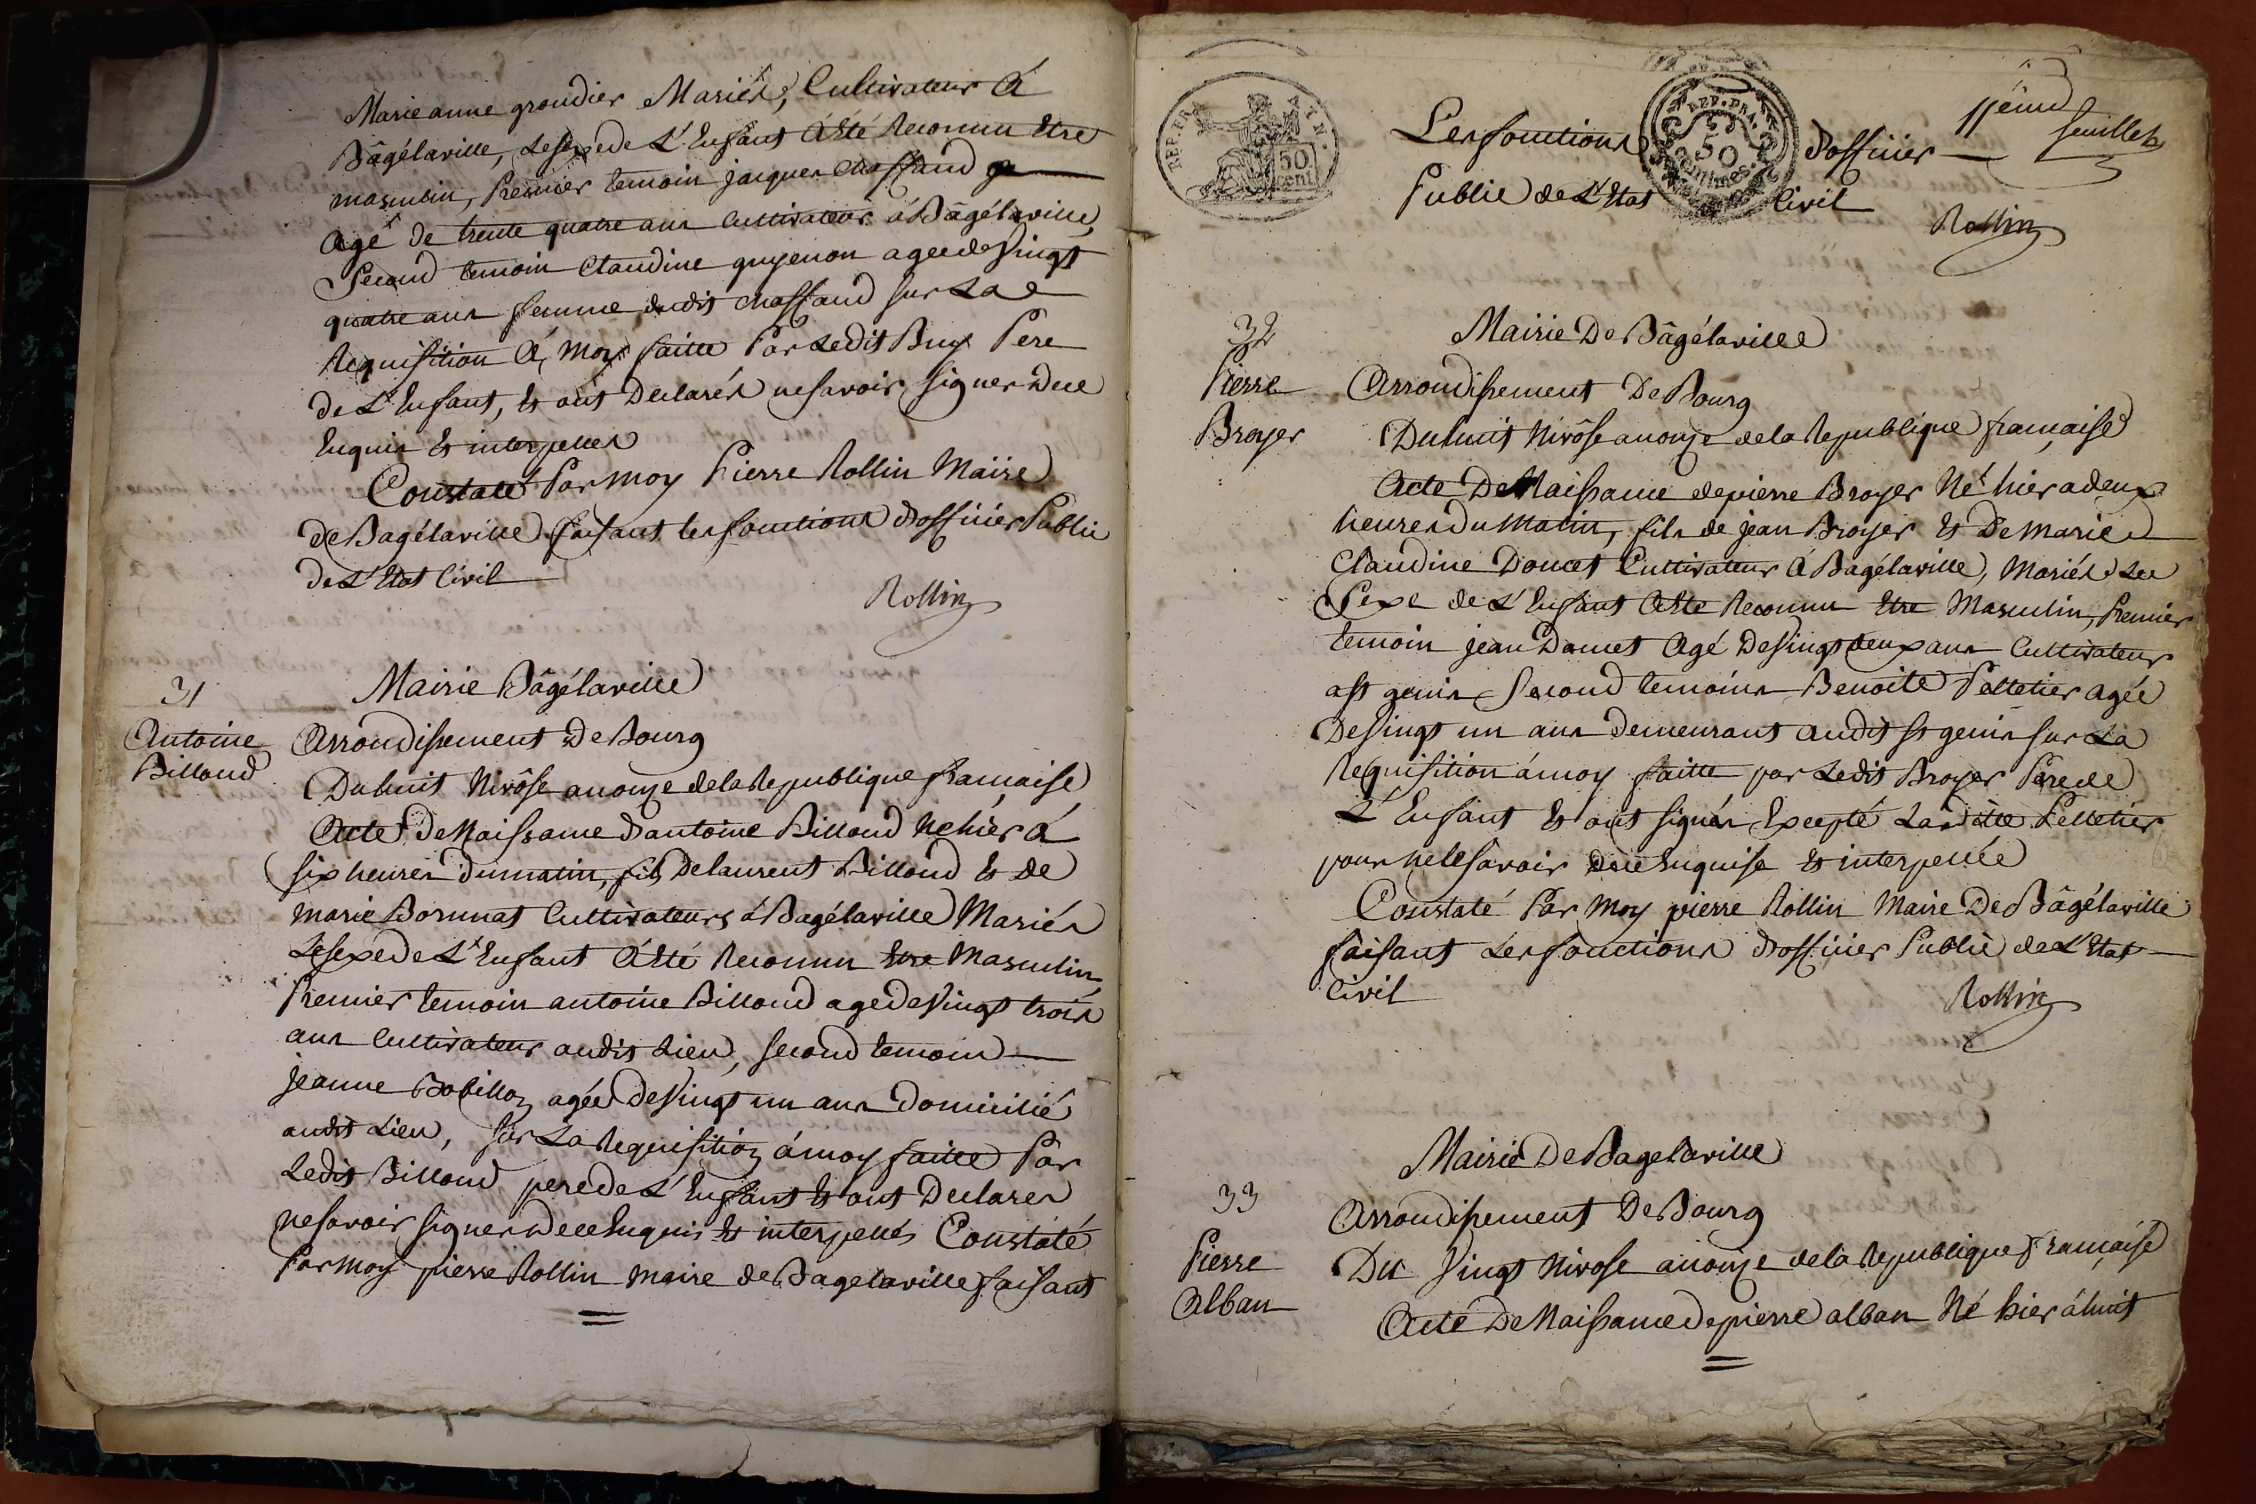 Marie anne grondier Mariés, Cultivateur à
Bâgélaville, Le sexe de L'Enfant à Eté Reconnu Etre
masculin, Premier temoin jacques chaffaud
agé de trente quatre ans Cultivateur à Bâgélaville,
Second temoin Claudine guyenon agee de Vingt
quatre ans femme dudit chaffaud sur La
Requisition à moy faitte Par Ledit Buy Pere
de L'Enfant, Et ont Declarés ne savoir signer Dece
Enquis Et interpelles
Constaté Par moy Pierre Rollin Maire
de Bagélaville faisant les fonctions d'officier Public
de L'Etat Civil
Rollin
31
Antoine
Billoud
Mairie Bâgélaville
Arrondissement De Bourg
Du huit Nivôse an onze de la Republique française
Acte De Naissance d'antoine Billoud Né hier à
six heures du matin, fils De laurent Billoud Et de
marie Bornnat Cultivateurs à Bagélaville Mariés
Le sexe de L'Enfant à Eté Reconnu Etre Masculin,
Premier temoin antoine Billoud age de Vingt trois
ans Cultivateur audit Lieu, second temoin
jeanne Robillon agée de Vingt un ans Domicilié
audit Lieu, sur La Requisition à moy faitte Par
Ledit Billoud pere de L'Enfant Et ont Declares
ne savoir signer Dece Enquis Et interpellés Constaté
Par moy pierre Rollin maire de Bagelaville faisant
REP. FRA.
50
cent
REP. FRA.
50
Centimes
11ème
feuillet
Les fonctions d'officier
Public de L'Etat Civil
Rollin
32
Pierre
Broyer
Mairie De Bâgélaville
Arrondissement De Bourg
Du huit Nivôse an onze de la Republique française
Acte De Naissance de pierre Broyer Né hier a deux
heures du Matin, fils de jean Broyer Et De Marie
Claudine Doucet Cultivateur à Bagélaville, Mariés Le
Sexe de L'Enfant à Eté Reconnu Etre Masculin, Premier
temoin jean Doucet Agé De Vingt deux ans Cultivateur
a st genis Second temoins Benoite Pelletier agée
De Vingt un ans demeurant audit st genis sur La
Requisition à moy faitte par Ledit Broyer Pere de
L'Enfant Et ont signés Excepté La ditte Pelletier
pour ne le savoir dece Enquise Et interpellée
Constaté Par Moy pierre Rollin Maire De Bâgélaville
faisant Les fonctions d'officier Public de L'Etat
Civil
Rollin
33
Pierre
Alban
Mairie De Bagelaville
Arrondissement De Bourg
Du Vingt Nivose an onze de la Republique française
Acte De Naissance de pierre alban Né hier à huit